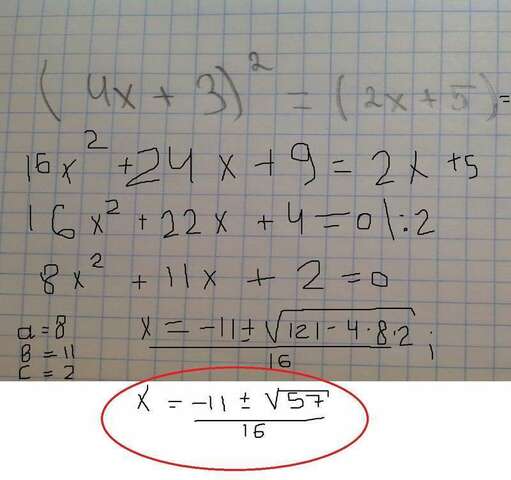 (4x + 3)² = (2x + 5), =
16x² + 24x + 9 = 2x + 5
16x² + 22x + 4 = 0 |:2
8x² + 11x + 2 = 0
a = 8
B = 11
c = 2
x = -11 ± √121 - 4·8·2 / 16 ;
x = -11 ± √57 / 16